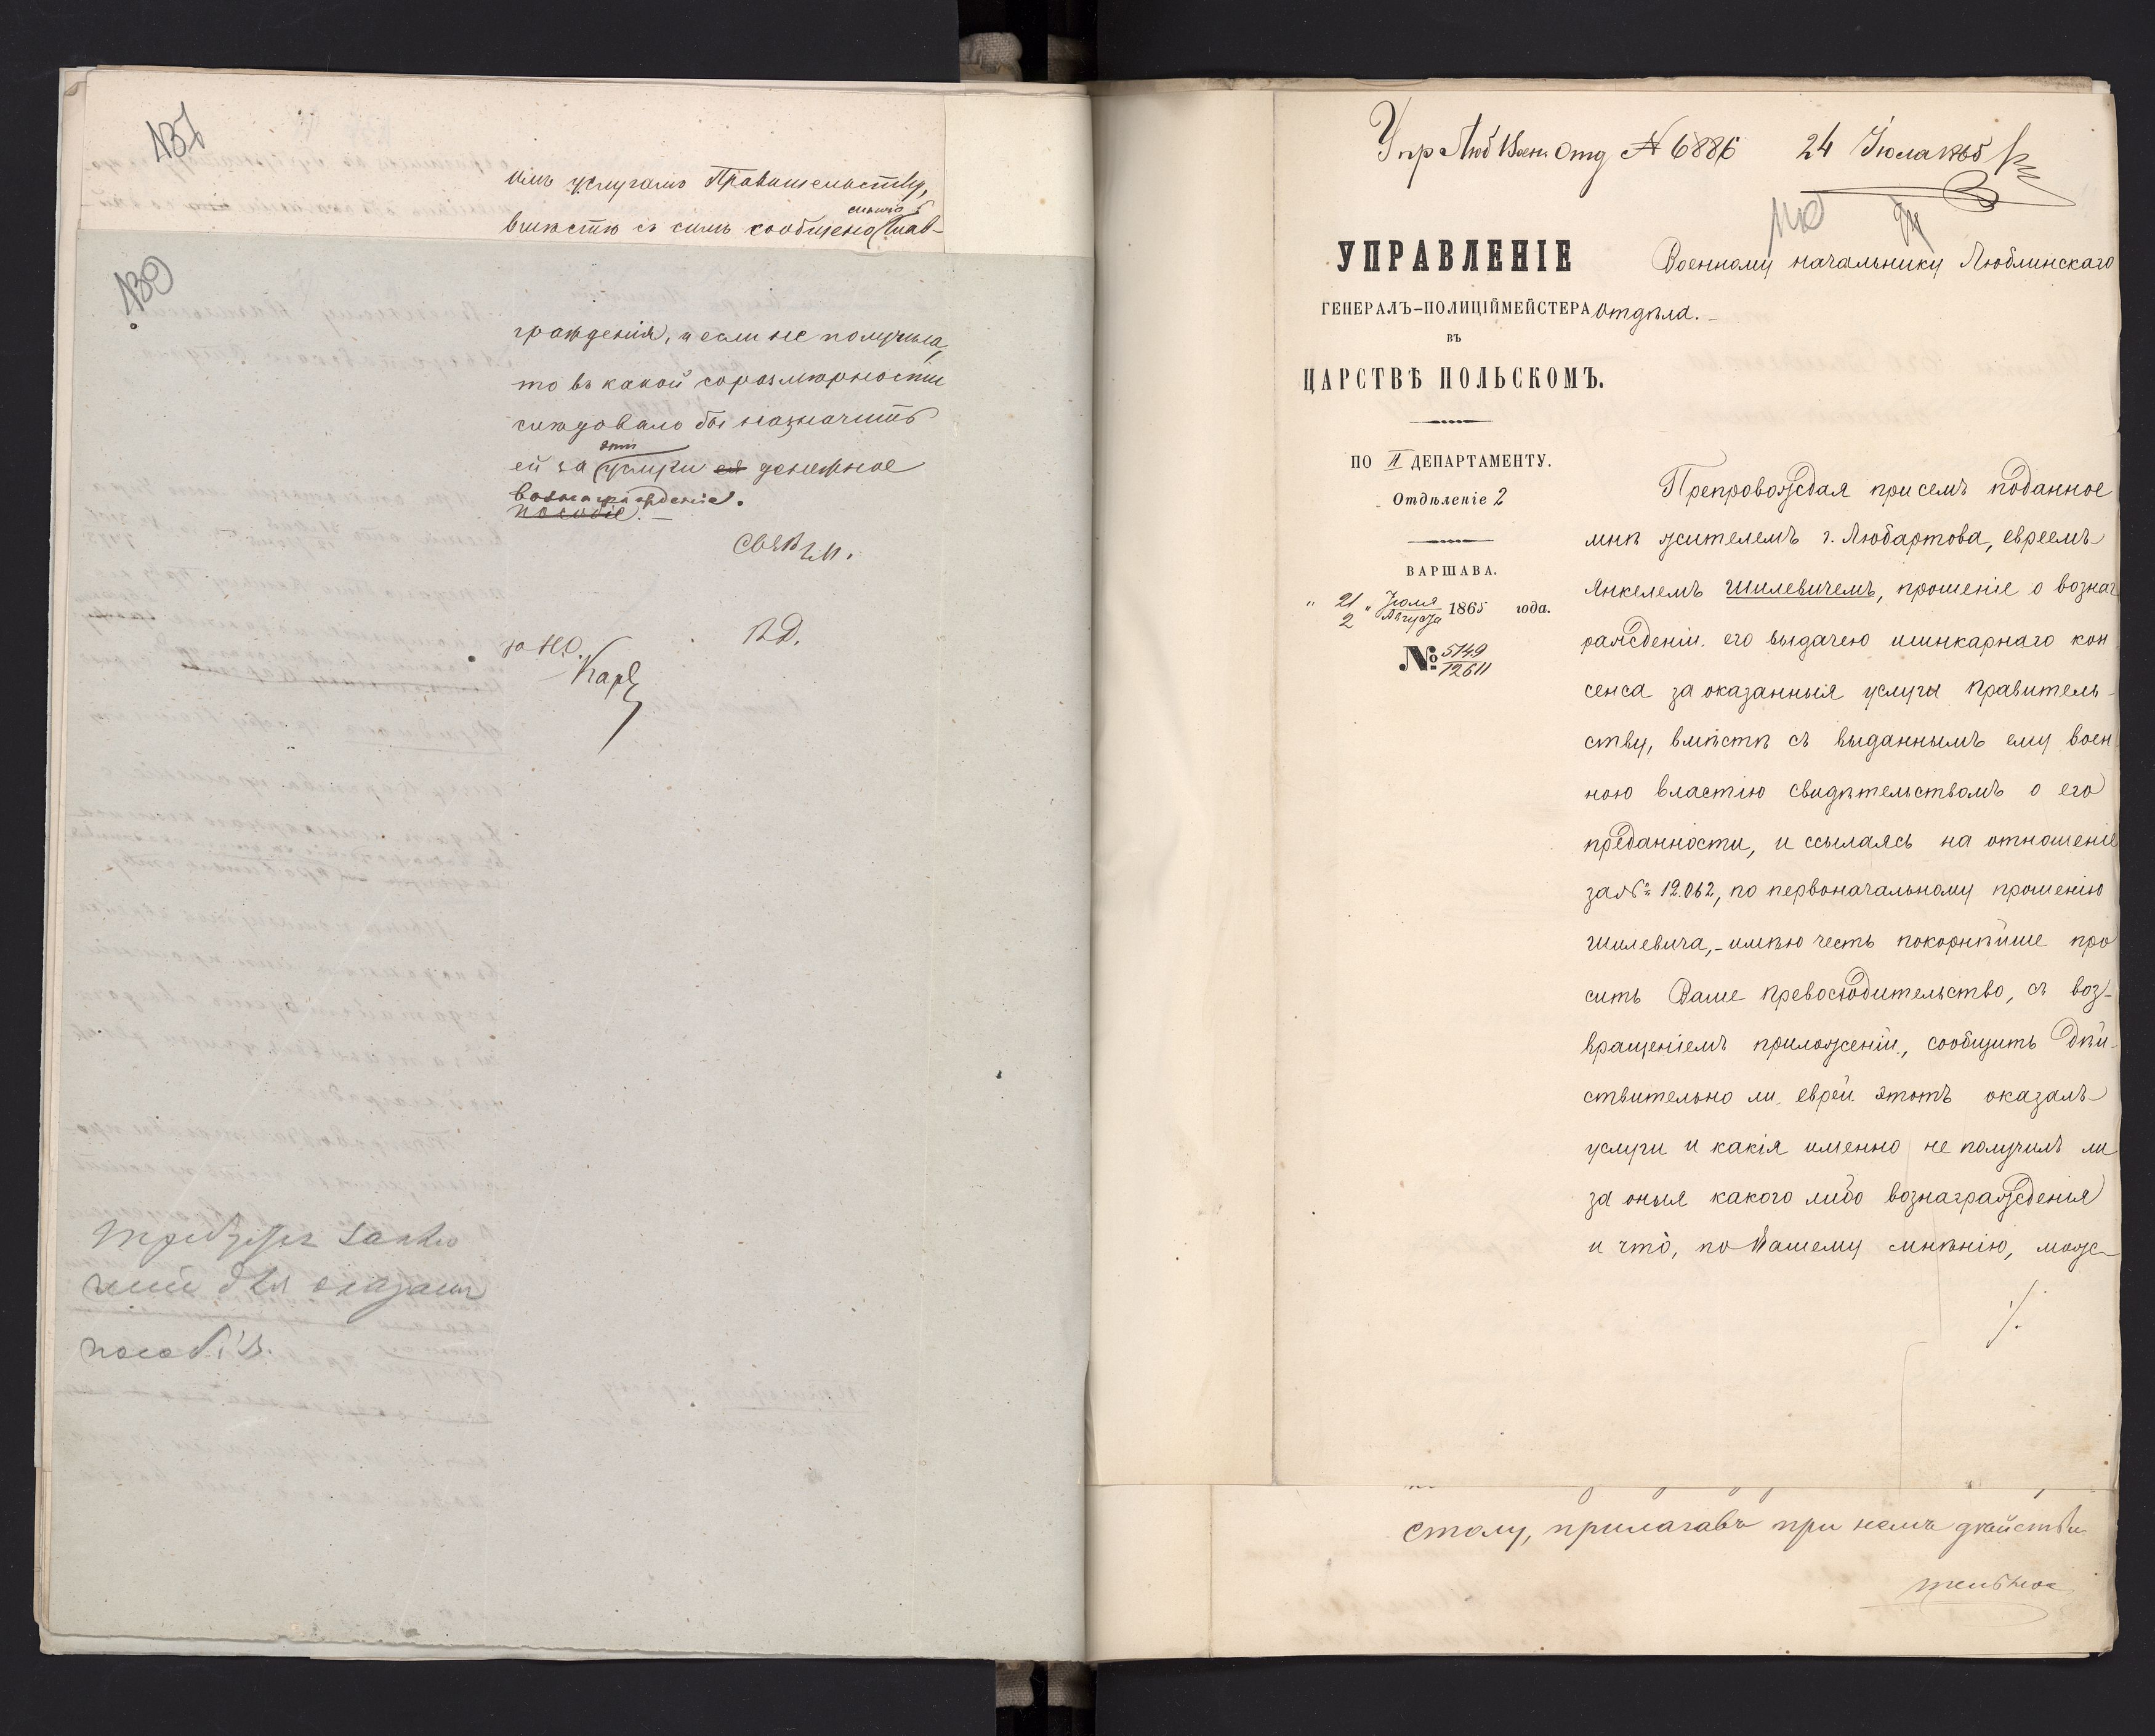 131
имъ услугамъ Правительству,
вмѣстѣ съ симъ сообщено Глав-
130
гражденія, и если не получила,
то въ какой соразмѣрности
слѣдовало бы назначить
ей за эти услуги ея денежное
вознагражденіе.
пособіе.
за Н.О.
В.Д.
для оказанія
пособія.
Упр Люб Воен Отд № 6886 24 Іюля
УПРАВЛЕНІЕ
ГЕНЕРАЛЪ-ПОЛИЦІЙМЕЙСТЕРА
ВЪ
ЦАРСТВѢ ПОЛЬСКОМЪ.
ПО II ДЕПАРТАМЕНТУ.
Отдѣленіе 2
ВАРШАВА.
„ 21/2 „ Іюля/Августа 1865 года.
№ 5149/12611
Военному начальнику Люблинскаго
отдѣла.
Препровождая при семъ поданное
мнѣ жителемъ г. Любартова, евреемъ
Янкелемъ Шилевичемъ, прошеніе о вознаг
ражденіи его выдачею шинкарнаго кон
сенса за оказанныя услуги правитель-
ству, вмѣстѣ съ выданнымъ ему воен
ною властію свидѣтельствомъ о его
преданности, и ссылаясь на отношеніе
за № 12.062, по первоначальному прошенію
Шилевича, - имѣю честь покорнѣйше про
сить Ваше превосходительство, съ воз-
вращеніемъ приложеній, сообщить дѣй-
ствительно ли еврей этотъ оказалъ
услуги и какія именно не получилъ ли
за оныя какого либо вознагражденія
и что, по Вашему мнѣнію, мож-
./.
столу, прилагавъ при немъ дѣйстви
тельное